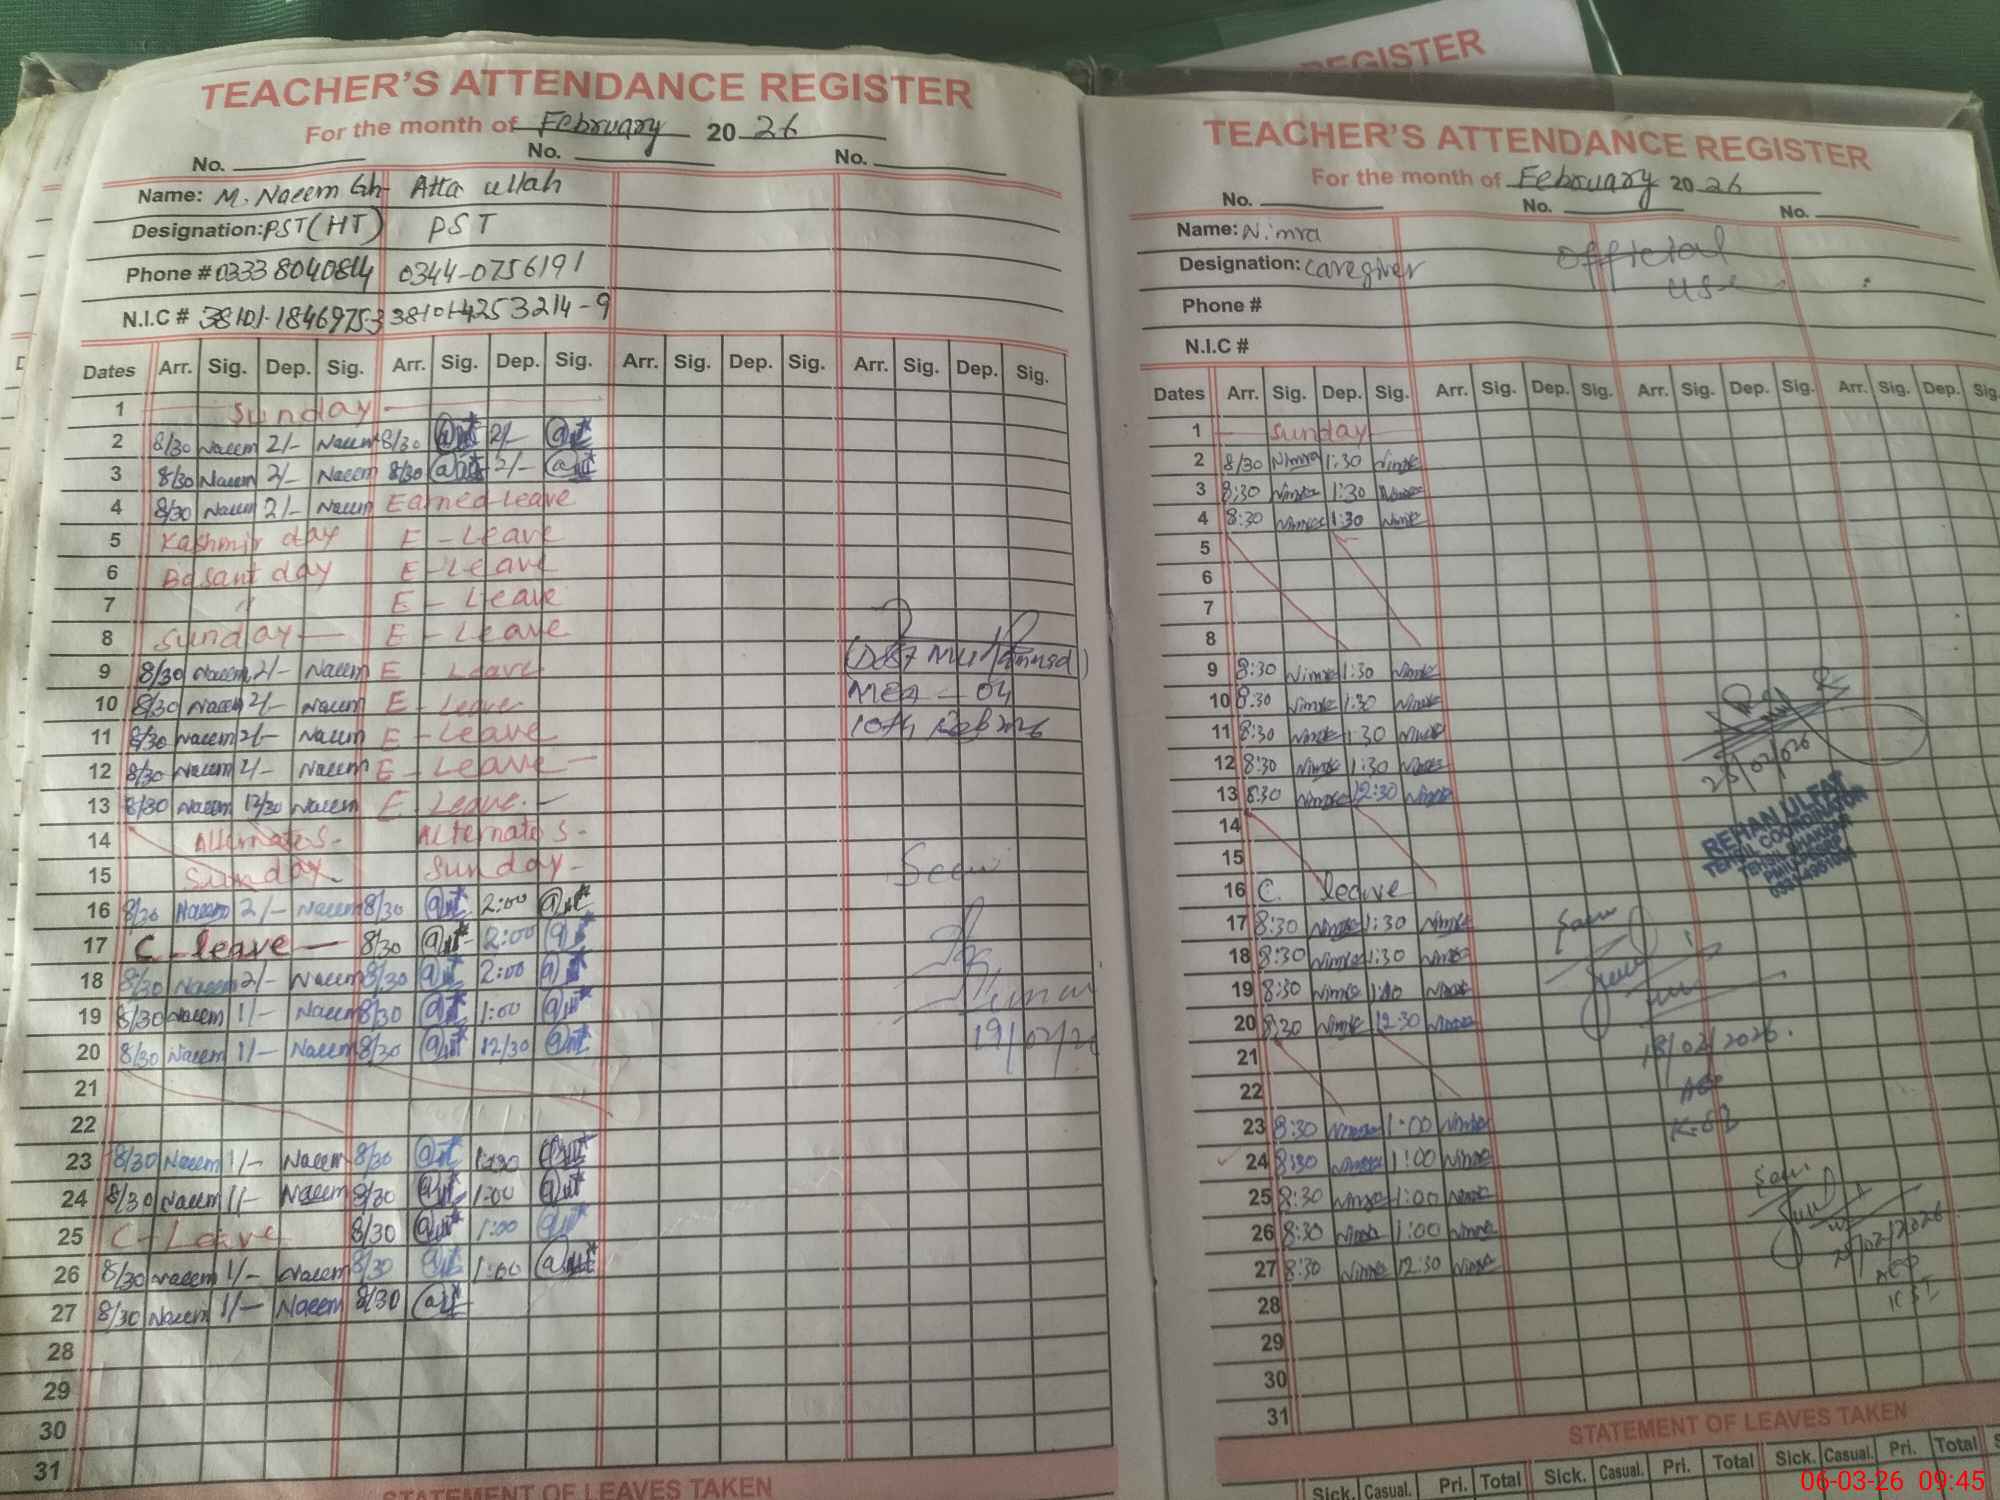 REGISTER
TEACHER'S ATTENDANCE REGISTER
For the month of February 20 26
No. No. No.
Name: M. Naeem Gh Atta ullah
Designation: PST(HT) PST
Phone # 0333 8040814 0344-0756191
N.I.C # 38101-18469753 38101-4253214-9
Dates Arr. Sig. Dep. Sig. Arr. Sig. Dep. Sig. Arr. Sig. Dep. Sig. Arr. Sig. Dep. Sig.
1 Sunday
2 8/30 Naeem 2/- Naeem 8/30 2/-
3 8/30 Naeem 2/- Naeem 8/30 2/-
4 8/30 Naeem 2/- Naeem Earned-Leave
5 Kashmir day E-Leave
6 Basant day E-Leave
7 " E-Leave
8 Sunday E-Leave
9 8/30 Naeem 2/- Naeem E-Leave
10 8/30 Naeem 2/- Naeem E-Leave
11 8/30 Naeem 2/- Naeem E-Leave
12 8/30 Naeem 2/- Naeem E-Leave
13 8/30 Naeem 12/30 Naeem E-Leave
14 Alternate S- Alternate S-
15 Sunday- Sunday-
16 8/30 Naeem 2/- Naeem 8/30 2:00
17 C-leave 8/30 2:00
18 8/30 Naeem 2/- Naeem 8/30 2:00
19 8/30 Naeem 1/- Naeem 8/30 1:00
20 8/30 Naeem 1/- Naeem 8/30 12/30
21
22
23 8/30 Naeem 1/- Naeem 8/30
24 8/30 Naeem 1/- Naeem 8/30 1:00
25 C-Leave 8/30 1:00
26 8/30 Naeem 1/- Naeem 8/30 1:00
27 8/30 Naeem 1/- Naeem 8/30
28
29
30
31
(Dost Muhammad)
MEA-04
10th Feb 2026
Seen
19/02/26
STATEMENT OF LEAVES TAKEN
TEACHER'S ATTENDANCE REGISTER
For the month of February 20 26
No. No. No.
Name: Nimra
Designation: Caregiver
official
use
Phone #
N.I.C #
Dates Arr. Sig. Dep. Sig. Arr. Sig. Dep. Sig. Arr. Sig. Dep. Sig. Arr. Sig. Dep. Sig.
1 Sunday
2 8/30 Nimra 1:30 Nimra
3 8:30 Nimra 1:30 Nimra
4 8:30 Nimra 1:30 Nimra
5
6
7
8
9 8:30 Nimra 1:30 Nimra
10 8:30 Nimra 1:30 Nimra
11 8:30 Nimra 1:30 Nimra
12 8:30 Nimra 1:30 Nimra
13 8:30 Nimra 12:30 Nimra
14
15
16 C. leave
17 8:30 Nimra 1:30 Nimra
18 8:30 Nimra 1:30 Nimra
19 8:30 Nimra 1:00 Nimra
20 8:30 Nimra 12:30 Nimra
21
22
23 8:30 Nimra 1:00 Nimra
24 8:30 Nimra 1:00 Nimra
25 8:30 Nimra 1:00 Nimra
26 8:30 Nimra 1:00 Nimra
27 8:30 Nimra 12:30 Nimra
28
29
30
31
REHAN ULFAT
TEHSIL COORDINATOR
TEHSIL BHAKKAR
Seen
18/02/2026.
Seen
STATEMENT OF LEAVES TAKEN
Sick. Casual. Pri. Total Sick. Casual. Pri. Total Sick. Casual. Pri. Total
06-03-26 09:45